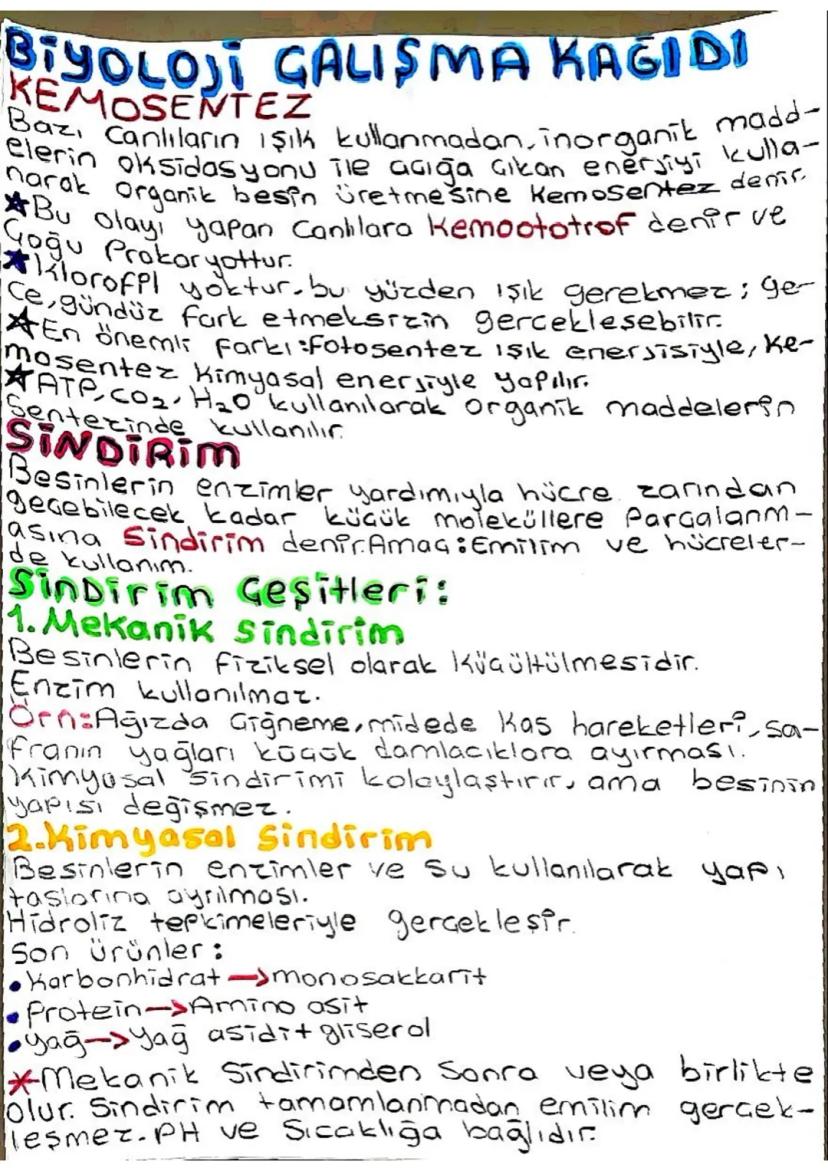 BİYOLOJİ ÇALIŞMA KAĞIDI
KEMOSENTEZ
Bazı canlıların ışık kullanmadan, inorganik madd-
elerin oksidasyonu ile açığa çıkan enerjiyi kulla-
narak organik besin üretmesine Kemosentez denir.
★Bu olayı yapan canlılara kemoototrof denir ve
Çoğu Prokaryottur.
★Klorofil yoktur, bu yüzden ışık gerekmez; ge-
ce, gündüz fark etmeksizin gerçekleşebilir.
★En önemli farkı: fotosentez ışık enerjisiyle, ke-
mosentez kimyasal enerjiyle yapılır.
★ATP, CO2, H2O kullanılarak organik maddelerin
sentezinde kullanılır.
SİNDİRİM
Besinlerin enzimler yardımıyla hücre zarından
geçebilecek kadar küçük moleküllere Parçalanm-
asına Sindirim denir. Amaç: Emilim ve hücreler-
de kullanım.
Sindirim Çeşitleri:
1. Mekanik sindirim
Besinlerin fiziksel olarak küçültülmesidir.
Enzim kullanılmaz.
Örn: Ağızda çiğneme, midede kas hareketleri, sa-
franın yağları küçük damlacıklara ayırması.
Kimyasal sindirimi kolaylaştırır, ama besinin
yapısı değişmez.
2. Kimyasal Sindirim
Besinlerin enzimler ve su kullanılarak yapı
taşlarına ayrılması.
Hidroliz tepkimeleriyle gerçekleşir.
Son ürünler:
• Karbonhidrat → monosakkarit
• Protein → Amino asit
• yağ → yağ asidi + gliserol
*Mekanik Sindirimden Sonra veya birlikte
olur. Sindirim tamamlanmadan emilim gerçek-
leşmez. PH ve Sıcaklığa bağlıdır.